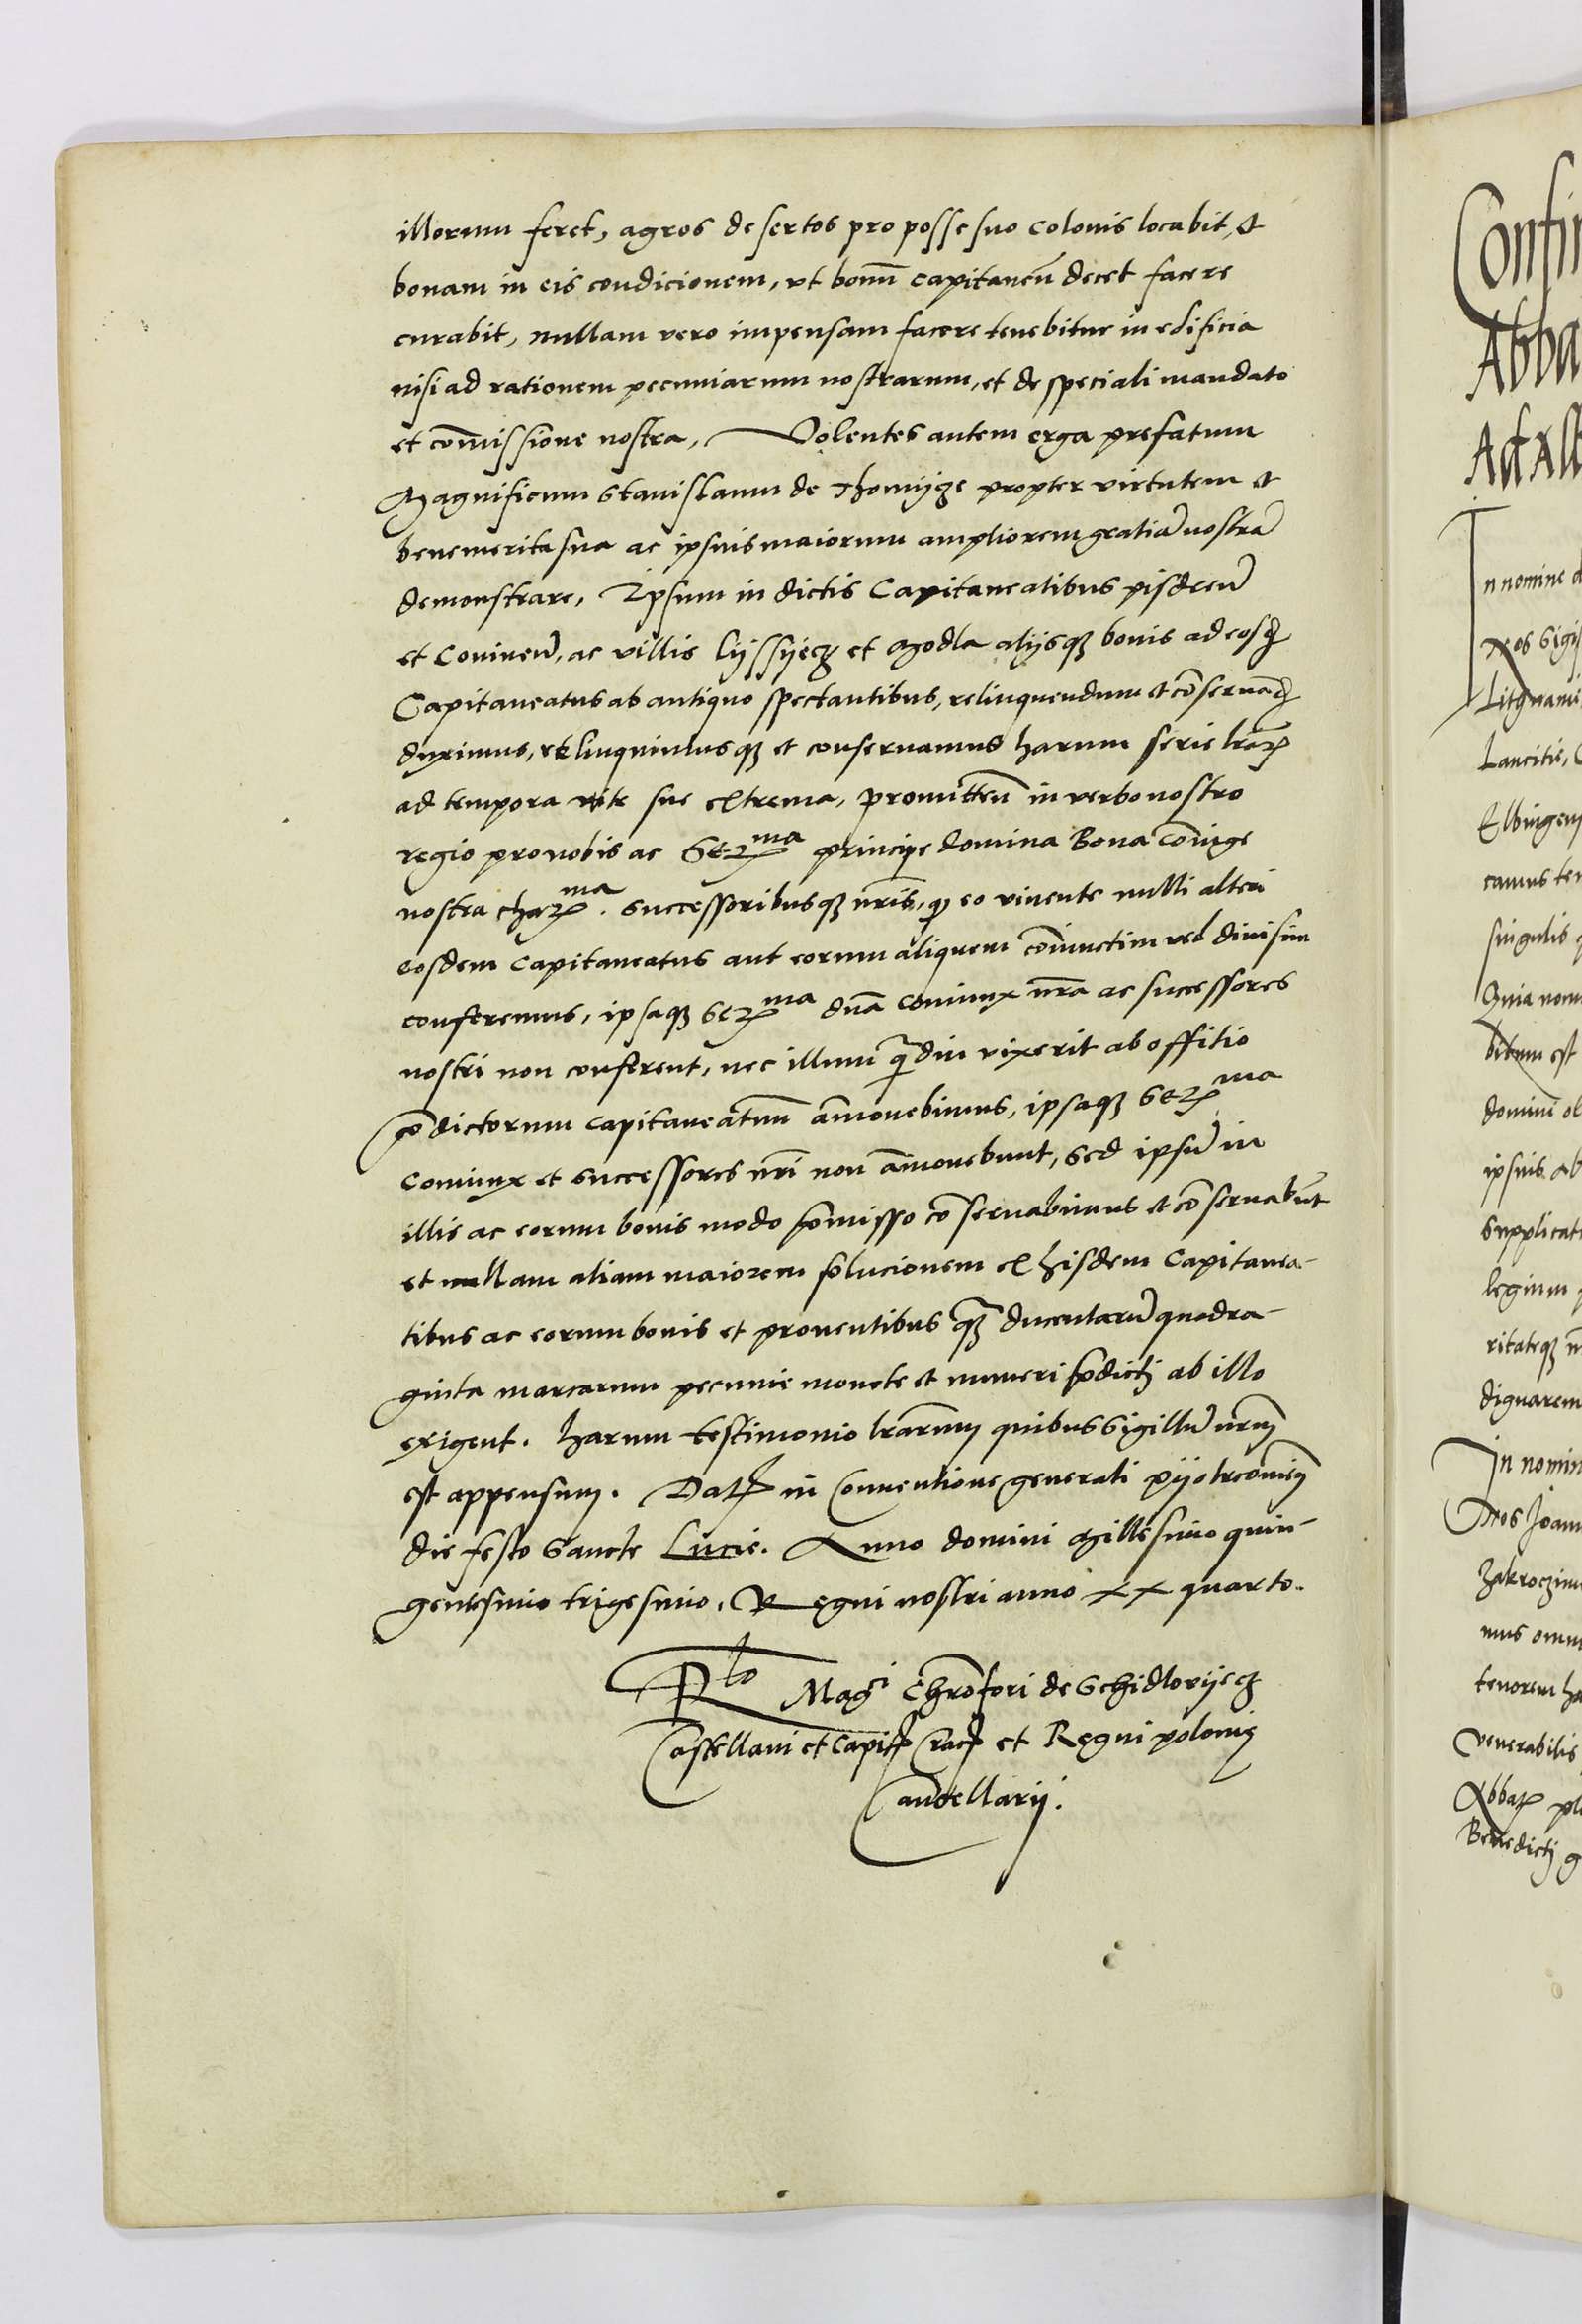 illorum feret, agros desertos pro posse suo colonis locabit, et
bonam in eis condicionem, ut bonũ capitaneũ decet facere
curabit, nullam vero impensam facere tenebitur in edificia
nisi ad rationem pecuniarum nostrarum, et de speciali mandato
et com̃issione nostra, Volentes autem erga prefatum
Magnificum Stanislaum de Thomijcze propter virtutem et
benemerita sua ac ipsius maiorum ampliorem gratiã nostrã
demonstrare, Ipsum in dictis Capitaneatibus pisdreñ
et Conineñ, ac villis Lijssijecz et Modla alijsq3 bonis ad eosd̃
Capitaneatus ab antiquo spectantibus, relinquendum et cõseruand̃
duximus, relinquimusq3 et conseruamus harum serie lr̃aꝝ
ad tempora vite sue extrema, promitteñ in verbo nostro
regio pro nobis ac Seꝝma principe domina Bona Coniuge
nostra chaꝝma. successoribusq3 nr̃is, qp eo vivente nulli alteri
eosdem capitaneatus aut eorum aliquem coniunctim vel diuisim
conferemus, ipsaq3 Seꝝma dn̄a Coniunx nr̃a ac successores
nostri non conferent, nec illum q̃diu vixerit ab offitio
p̄dictorum capitaneatuum am̃ouebimus, ipsaq3 Seꝝma
Coniunx et successores nr̃i non am̃ouebunt, sed ipsũ in
illis ac eorum bonis modo p̄misso cõseruabimus et cõseruabũt
et nullam aliam maiorem solucionem ex hisdem Capitanea-
tibus ac eorum bonis et prouentibus q̃3 ducentarũ quadra-
ginta marcarum pecunie monete et numeri p̄dictj ab illo
exigent. Harum testimonio lr̃arum quibus Sigillũ nr̃um
est appensum. Datꝝ in Conuentione generali pijotrcouieñ
die festo Sancte Lucie. Anno domini Millesimo quin-
gentesimo trigesimo. Regni nostri anno XX quarto.
Rlo Magci Chrõfori de Schidlovijecz
Castellani et Capitꝭ Cracꝭ et Regni polonię
Cancellarij.
Confir
Abba
Act Alt
In nomine d
Nos Sigis
Lithuanie
Lancitie,
Elbingen
camus ten
singulis
Quia nom
bitum est
domini ol
ipsius ab
Supplicat
legium
ritateq3
dignarem
In nomin
Nos Joan
Zakroczim
mus omn
tenorem ha
Venerabilis
Abbaꝝ pl
Benedictj g